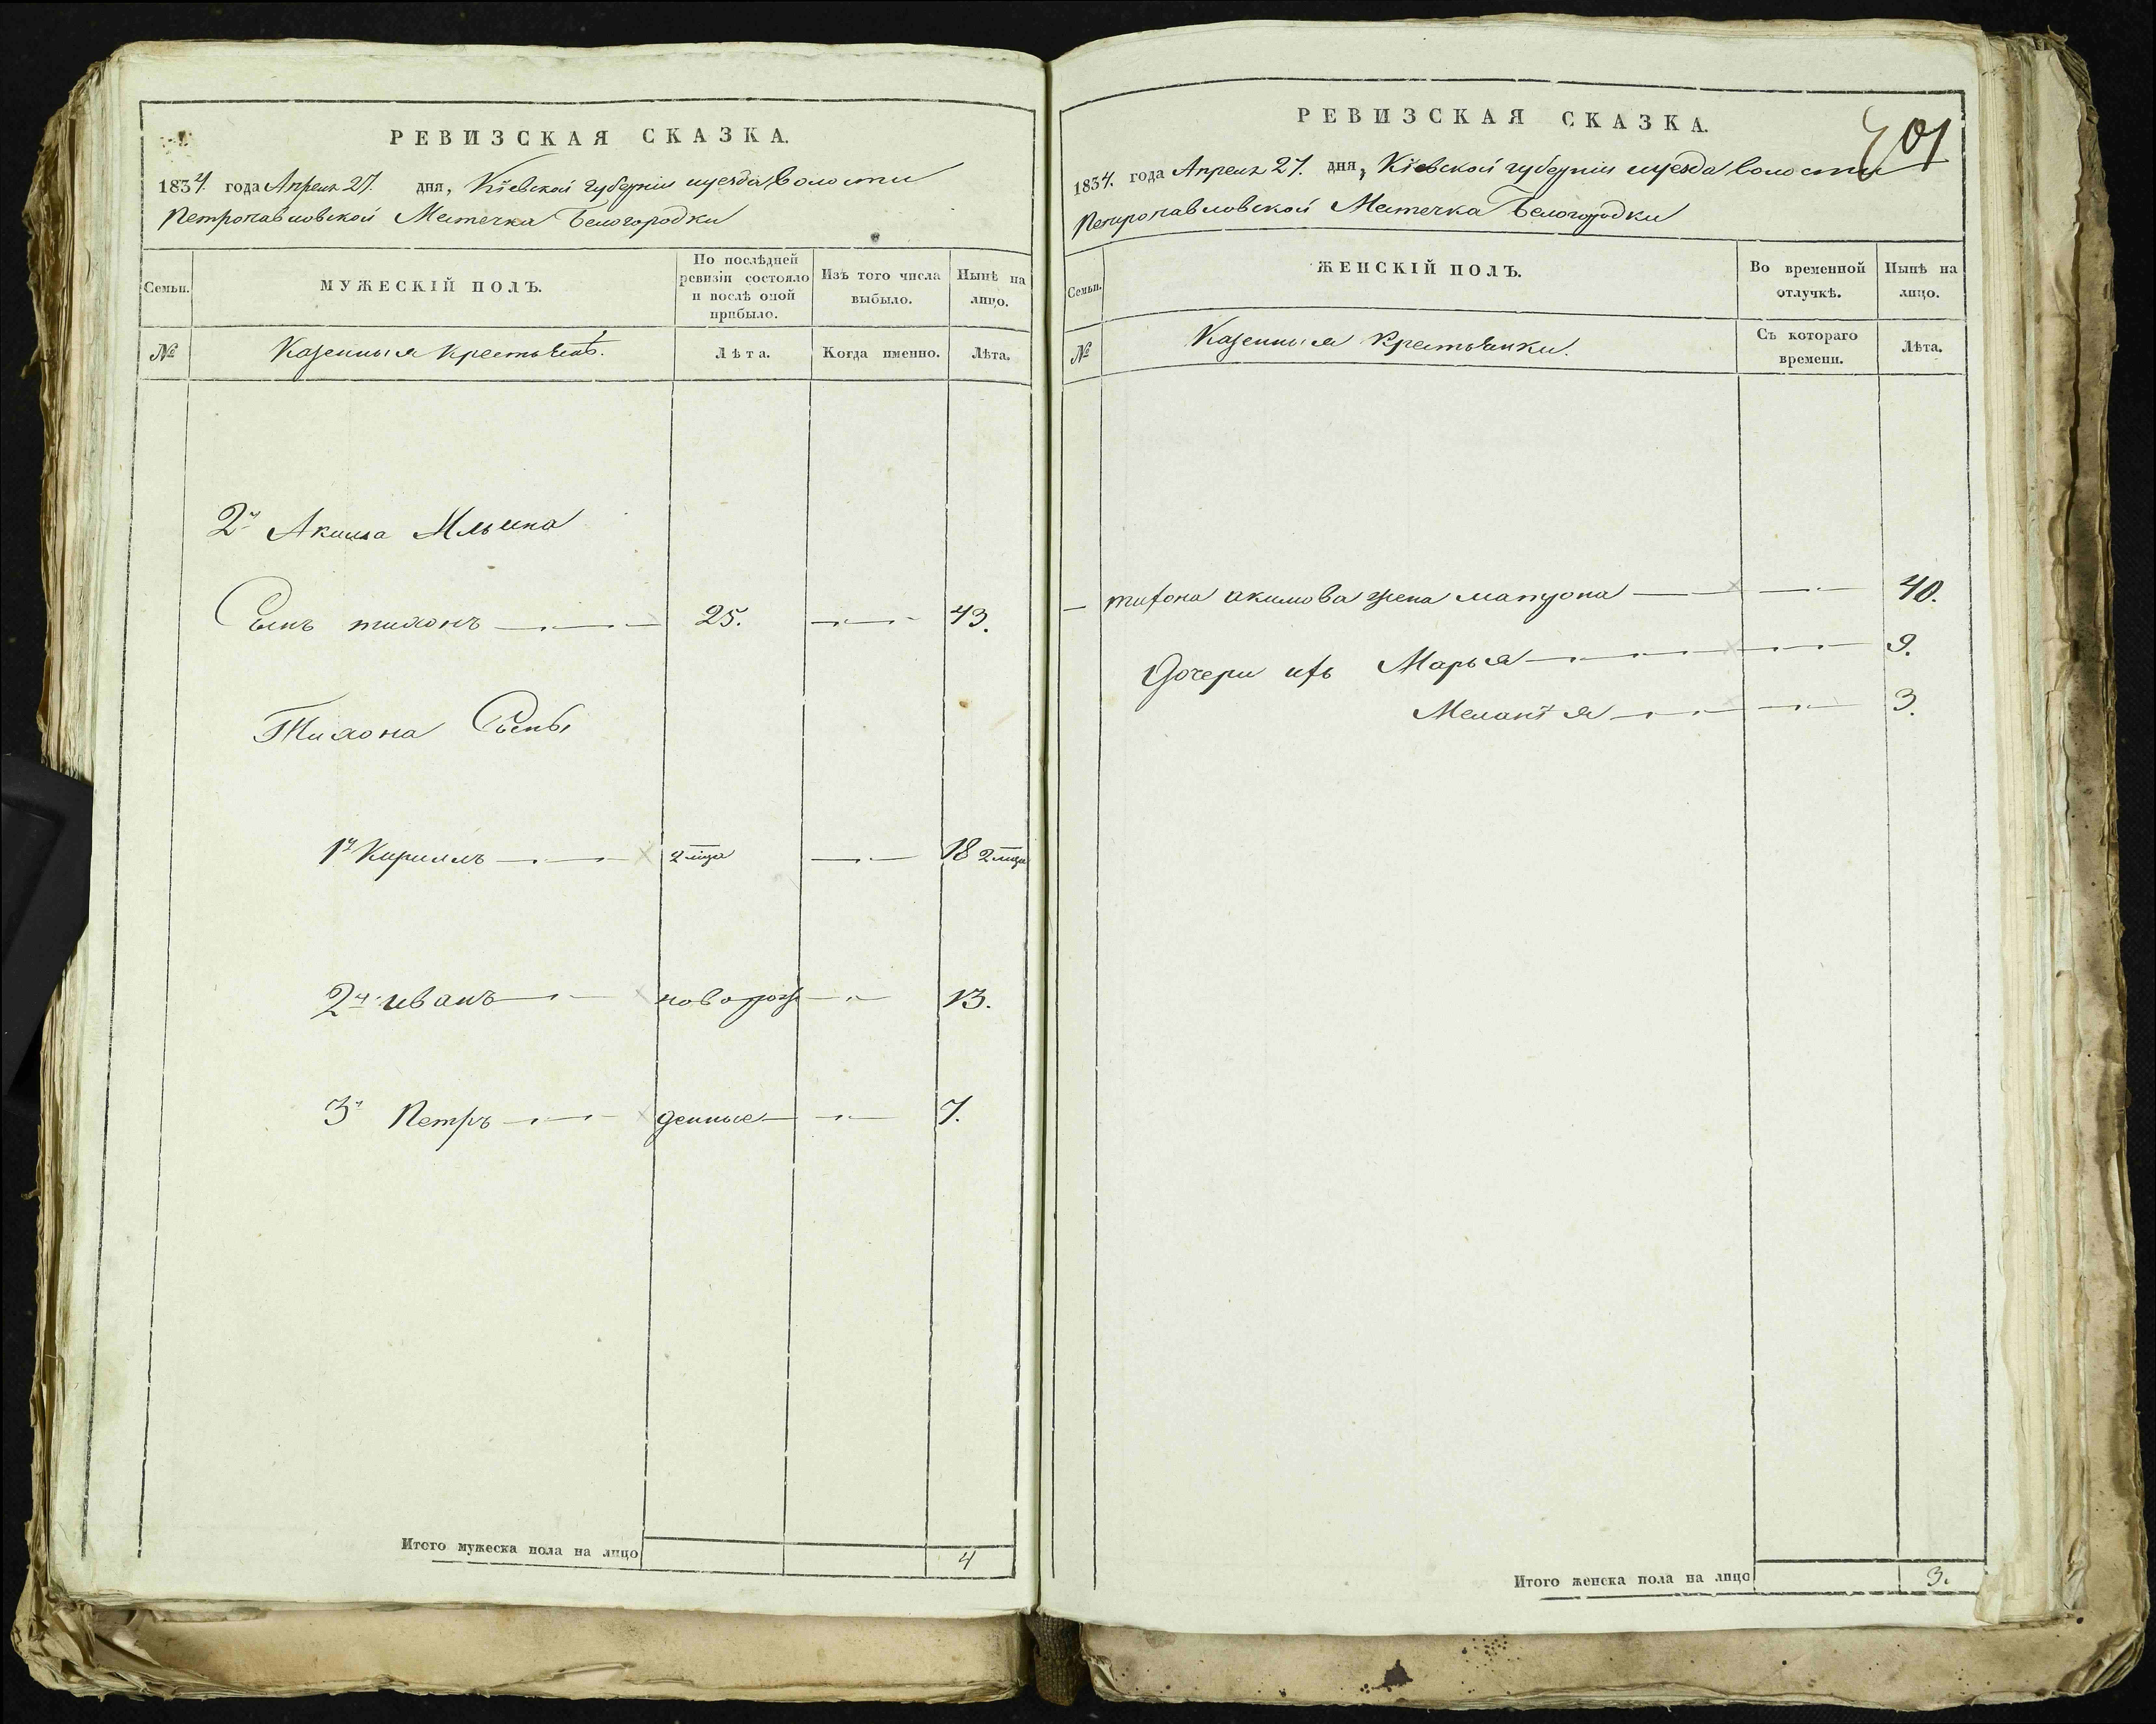 РЕВИЗСКАЯ СКАЗКА.
1834. года Апреля 27. дня, Кіевской губерніи и уезда волости
Петропавловской Местечка Белогородки
Семьи.
МУЖЕСКІЙ ПОЛЪ.
По послѣдней ревизіи состояло и послѣ оной прибыло.
Изъ того числа выбыло.
Нынѣ на лицо.
№
Казенныя крестьянѣ.
Лѣта.
Когда именно.
Лѣта.
2й Акима Ильина
Сынъ тихонъ 25. 43.
Тихона Сыны
1й Кирилъ 2 мца 18 2 мца
2й иванъ новорож 13.
3й Петръ денные 7.
Итого мужеска пола на лицо 4
РЕВИЗСКАЯ СКАЗКА.
401
1834. года Апреля 27. дня, Кіевской губерніи и уезда волости
Петропавловской Местечка Белогородки
Семьи.
ЖЕНСКІЙ ПОЛЪ.
Во временной отлучкѣ.
Нынѣ на лицо.
№
Казенныя Крестьянки.
Съ котораго времени.
Лѣта.
тихона акимова жена матрона 40.
Дочери ихъ Марья 9.
Меланія 3.
Итого женска пола на лицо 3.